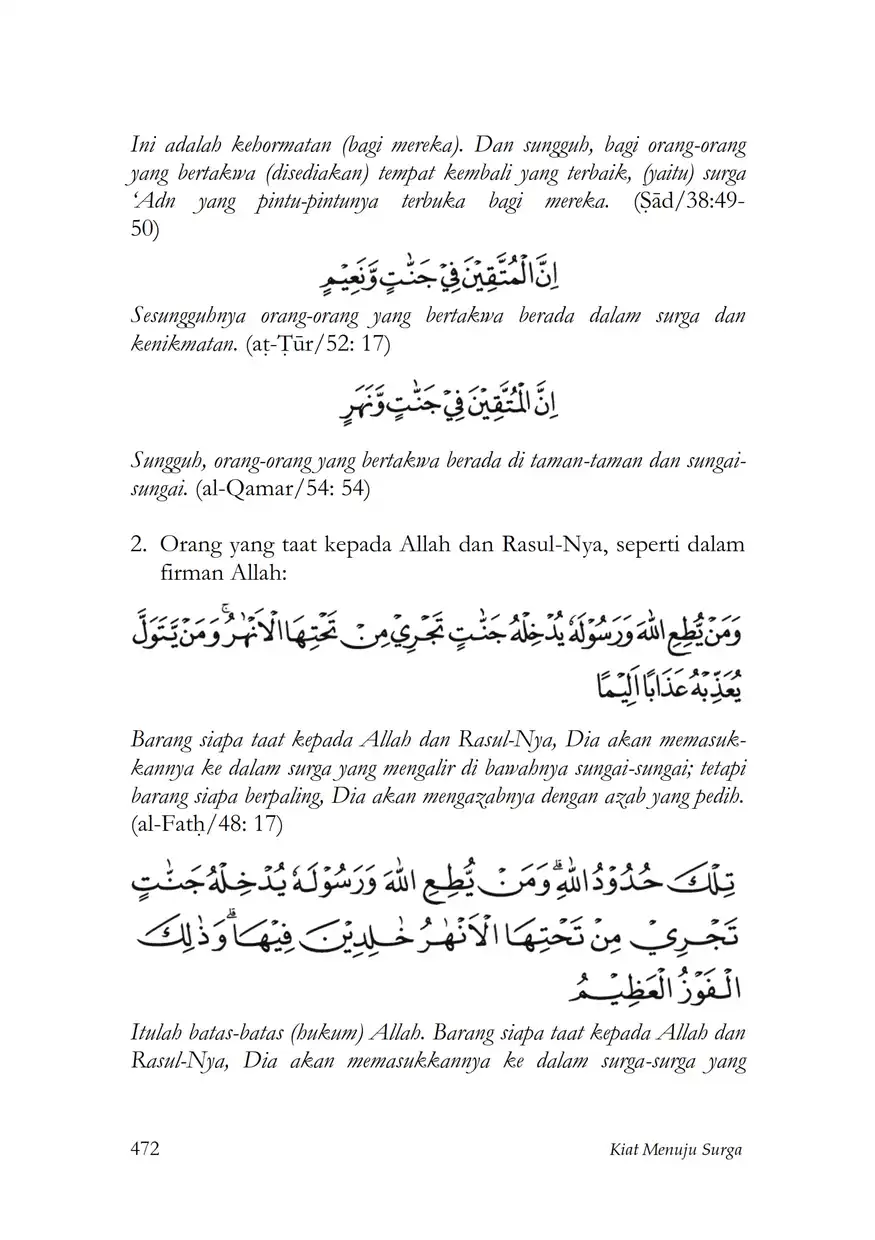 Ini adalah kehormatan (bagi mereka). Dan sungguh, bagi orang-orang
yang bertakwa (disediakan) tempat kembali yang terbaik, (yaitu) surga
‘Adn yang pintu-pintunya terbuka bagi mereka. (Ṣād/38:49-
50)
اِنَّ الْمُتَّقِيْنَ فِيْ جَنّٰتٍ وَّنَعِيْمٍ
Sesungguhnya orang-orang yang bertakwa berada dalam surga dan
kenikmatan. (aṭ-Ṭūr/52: 17)
اِنَّ الْمُتَّقِيْنَ فِيْ جَنّٰتٍ وَّنَهَرٍ
Sungguh, orang-orang yang bertakwa berada di taman-taman dan sungai-
sungai. (al-Qamar/54: 54)
2. Orang yang taat kepada Allah dan Rasul-Nya, seperti dalam
firman Allah:
وَمَنْ يُّطِعِ اللّٰهَ وَرَسُوْلَهٗ يُدْخِلْهُ جَنّٰتٍ تَجْرِيْ مِنْ تَحْتِهَا الْاَنْهٰرُ ۚ وَمَنْ يَّتَوَلَّ
يُعَذِّبْهُ عَذَابًا اَلِيْمًا
Barang siapa taat kepada Allah dan Rasul-Nya, Dia akan memasuk-
kannya ke dalam surga yang mengalir di bawahnya sungai-sungai; tetapi
barang siapa berpaling, Dia akan mengazabnya dengan azab yang pedih.
(al-Fatḥ/48: 17)
تِلْكَ حُدُوْدُ اللّٰهِ ۗ وَمَنْ يُّطِعِ اللّٰهَ وَرَسُوْلَهٗ يُدْخِلْهُ جَنّٰتٍ
تَجْرِيْ مِنْ تَحْتِهَا الْاَنْهٰرُ خٰلِدِيْنَ فِيْهَا ۗ وَذٰلِكَ
الْفَوْزُ الْعَظِيْمُ
Itulah batas-batas (hukum) Allah. Barang siapa taat kepada Allah dan
Rasul-Nya, Dia akan memasukkannya ke dalam surga-surga yang
472
Kiat Menuju Surga